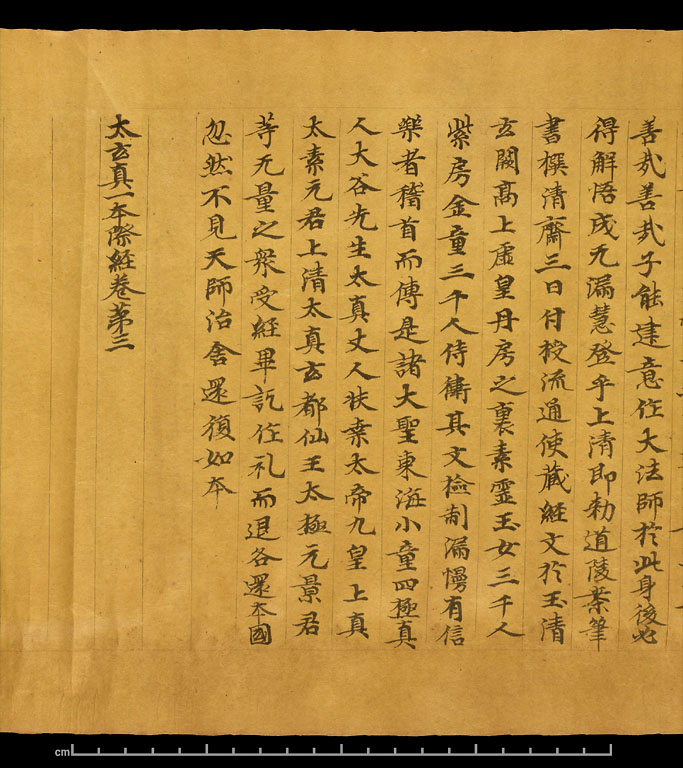 善哉善哉子能建意住大法師於此身後必
得解悟成无漏慧登乎上清即勑道陵槖筆
書撰清齋三日付授流通使蔵經文於玉清
玄闕髙上虛皇丹房之裏素靈玉女三千人
紫房金童三千人侍衛其文檢制漏慢有信
樂者稽首而傳是諸大聖東海小童四極真
人大谷先生太真丈人扶桒太帝九皇上真
太素元君上清太真玄都仙王太極元景君
䓁无量之衆受經畢訖住礼而退各還夲國
忽然不見天師治舍還復如夲
太玄真一夲際經卷第三
cm